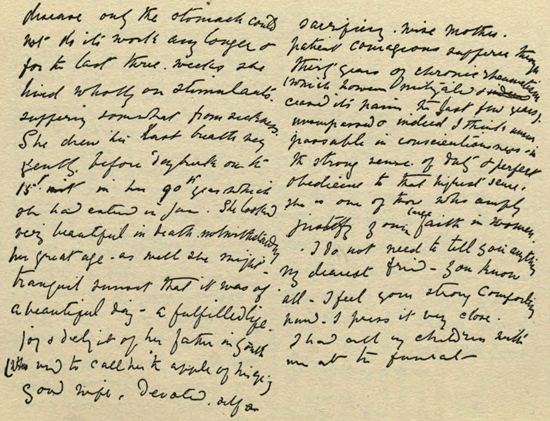 disease only the stomach could
not do its work any longer &
for the last three weeks she
lived wholly on stimulants.
suffering somewhat from sickness.
She drew her last breath very
gently, before daybreak on the
15th inst in her 90th year which
she had entered in Jan. She looked
very beautiful in death, notwithstanding
her great age - as well she might -
tranquil sunset that it was of
a beautiful day - a fulfilled life.
joy & delight of her father in youth
(who used to call her the apple of his eye)
good wife, devoted, self
sacrificing, wise mother.
patient courageous sufferer through
thirty years of chronic rheumatism
(which however mitigated &
ceased its pain the last few years)
unsurpassed & indeed I think unsur-
passable in conscientiousness - in
the strong sense of duty & perfect
obedience to that highest sense.
she is one of those who amply
justify your large faith in women.
- I do not need to tell you anything
my dearest friend - you know
all - I feel your strong comforting
hand. I press it very close.
I had all my children with
me at the funeral -